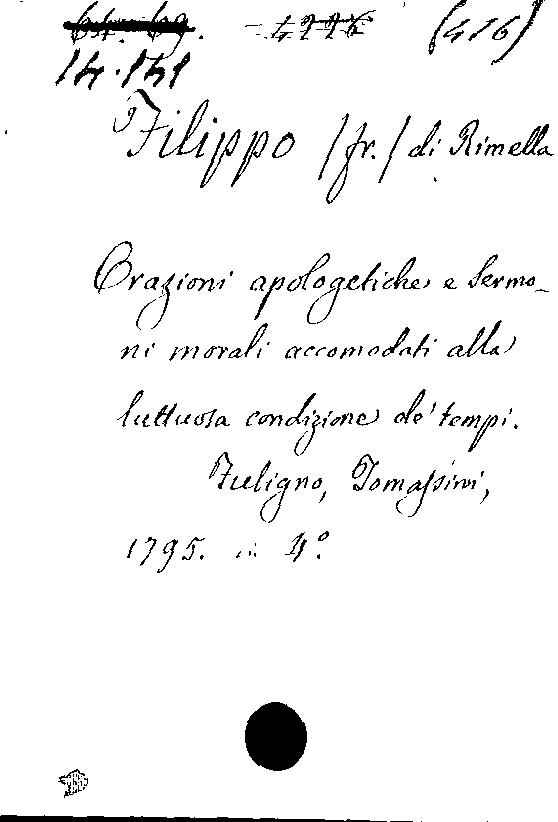 (416)
14.141
Filippo /fr./ di Rimella
Orazioni apologetiche e Sermo-
ni morali accomodati alla
luttuosa condizione de' tempi.
Fuligno, Tomassini,
1795. in 4°.